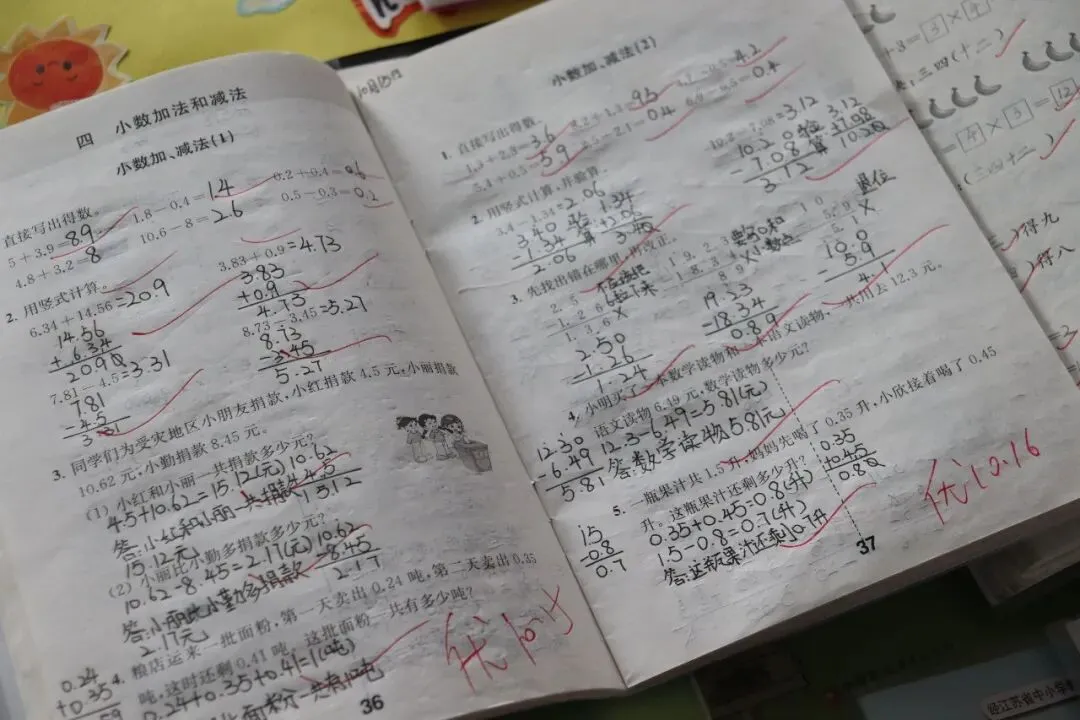 四 小数加法和减法
小数加、减法(1)
直接写出得数。
5+3.9=8.9 1.8-0.4=1.4 0.2+0.4=0.6
4.8+3.2=8 10.6-8=2.6 0.5-0.3=0.2
2. 用竖式计算。
6.34+14.56=20.9 3.83+0.9=4.73
14.56 3.83
+6.34 +0.9
20.90 4.73
7.81-4.5=3.31 8.73-3.45=5.27
7.81 8.73
-4.5 -3.45
3.31 5.27
3. 同学们为受灾地区小朋友捐款,小红捐款 4.5 元,小丽捐款
10.62 元,小勤捐款 8.45 元。
(1) 小红和小丽一共捐款多少元?
4.5+10.62=15.12(元) 10.62
+4.5
15.12
答:小红和小丽一共捐款
15.12元
(2) 小丽比小勤多捐款多少元?
10.62-8.45=2.17(元) 10.62
-8.45
2.17
答:小丽比小勤多捐款
2.17元
4. 粮店运来一批面粉,第一天卖出 0.24 吨,第二天卖出 0.35
吨,这时还剩 0.41 吨。这批面粉一共有多少吨?
0.24
+0.35
0.24+0.35+0.41=1(吨)
36
优
10月15日
小数加、减法(2)
1. 直接写出得数。
1.3+2.3=3.6
2. 用竖式计算,并验算。
3.4-1.34=2.06 10.2-7.08=3.12
3.40 验 1.34 10.20 验 3.12
-1.34 算 +2.06 -7.08 算 +7.08
2.06 3.40 3.12 10.20
3. 先找出错在哪里,再改正。
退位
2.50 19.23 10.0
-1.26 -18.34 -5.9
1.24 0.89 4.1
4. 小明买了一本数学读物和一本语文读物,一共用去 12.3 元。
语文读物 6.49 元,数学读物多少元?
12.30 12.3-6.49=5.81(元)
-6.49 答:数学读物5.81元
5.81
5. 一瓶果汁共 1.5 升,妈妈先喝了 0.35 升,小欣接着喝了 0.45
升。这瓶果汁还剩多少升?
0.35+0.45=0.8(升) 0.35
1.5-0.8=0.7(升) +0.45
0.80
1.5
-0.8
0.7
答:这瓶果汁还剩0.7升
37
优 10.16
+3=3×4
三四(十二)
4×3=12
(三四十二)
得九
得八
经江苏省中小学